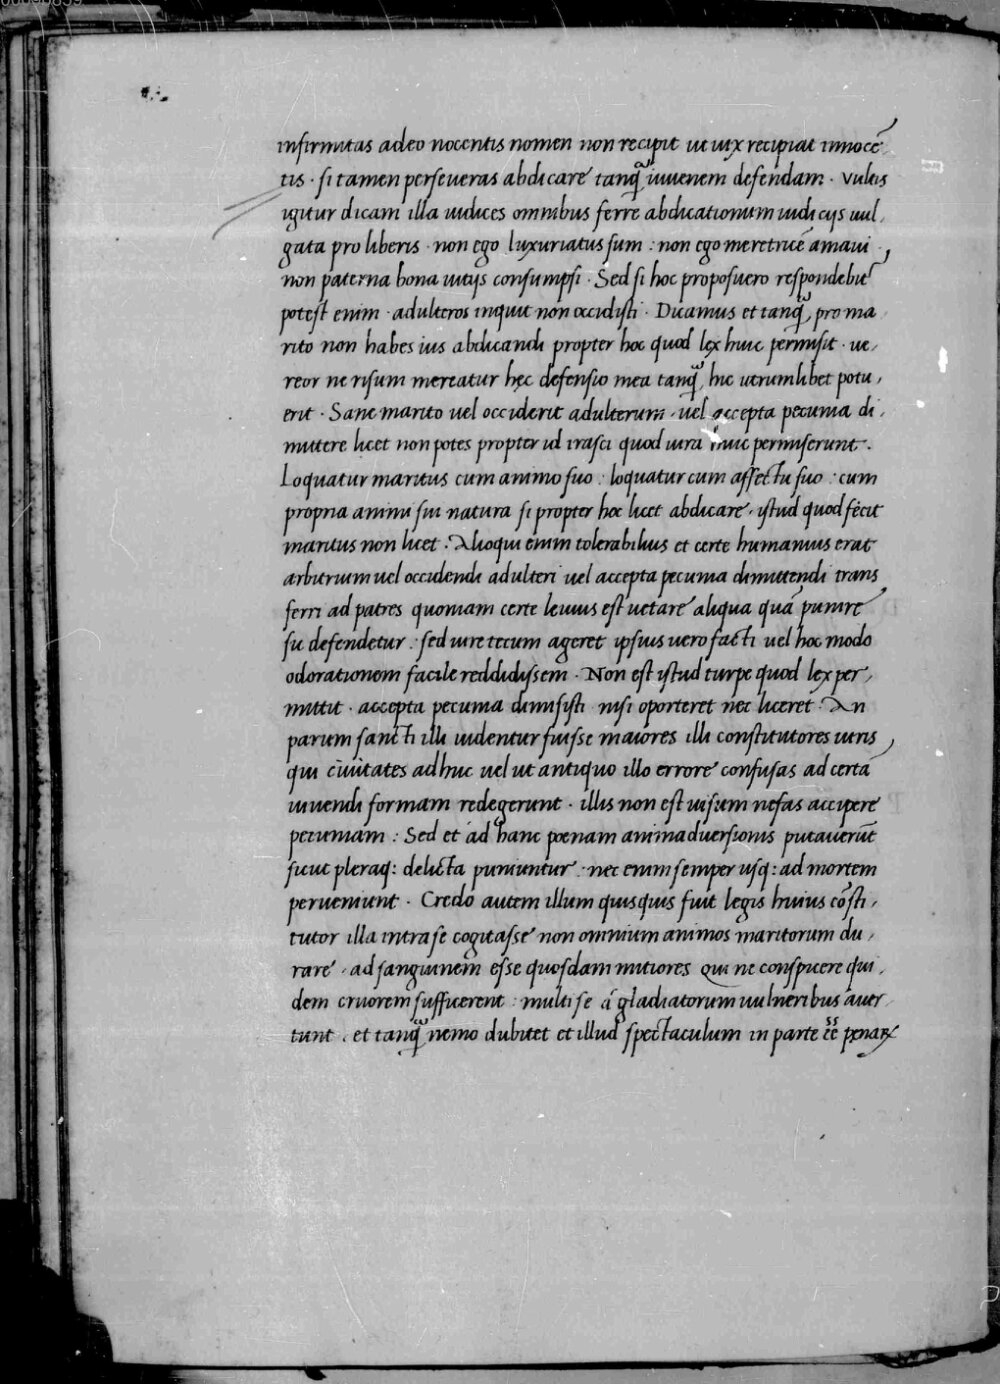 infirmitas adeo nocentis nomen non recipit ut uix recipiat innocẽ
tis · si tamen perseueras abdicare tanq̃ iuuenem defendam · Vultis
igitur dicam illa iudices omnibus ferre abdicationum iudicijs uul,
gata pro liberis · non ego luxuriatus sum : non ego meretricẽ amaui ·
non paterna bona uitijs consumpsi · Sed si hoc proposuero respondebit
potest enim · adulteros inquit non occidisti · Dicamus et tanq̃, pro ma
rito non habes ius abdicandi propter hoc quod lex huic permisit · ue,
reor ne risum mereatur hęc defensio mea tanq̃, hic utrumlibet potu,
erit · Sane marito uel occiderit adulterum · uel accepta pecunia di,
mittere licet non potes propter id irasci quod iura huic permiserunt ·
Loquatur maritus cum animo suo : loquatur cum affectu suo : cum
propria animi sui natura si propter hoc licet abdicare · istud quod fecit
maritus non licet · Alioqui enim tolerabilius et certe humanius erat
arbitrium uel occidendi adulteri uel accepta pecunia dimittendi trans
ferri ad patres quoniam certe leuius est uetare aliqua quã punire
si defendetur : sed iure tecum ageret ipsius uero facti uel hoc modo
odorationem facile reddidissem · Non est istud turpe quod lex per,
mittit · accepta pecunia dimisisti nisi oporteret nec liceret · An
parum sancti illi uidentur fuisse maiores illi constitutores iuris
qui ciuitates adhuc uel ut antiquo illo errore confusas ad certã
uiuendi formam redegerunt · illis non est uisum nefas accipere
pecuniam : Sed et ad hanc poenam animaduersionis putauerũt
sicut pleraq: delicta puniuntur : nec enim semper usq: ad mortem
perueniunt · Credo autem illum quisquis fuit legis huius cõsti,
tutor illa intra se cogitasse non omnium animos maritorum du,
rare · ad sanguinem esse quosdam mitiores qui ne conspicere qui,
dem cruorem sufficerent : multi se á gladiatorum uulneribus auer
tunt · et tanq̃ nemo dubitet et illud spectaculum in parte eẽ penaꝝ